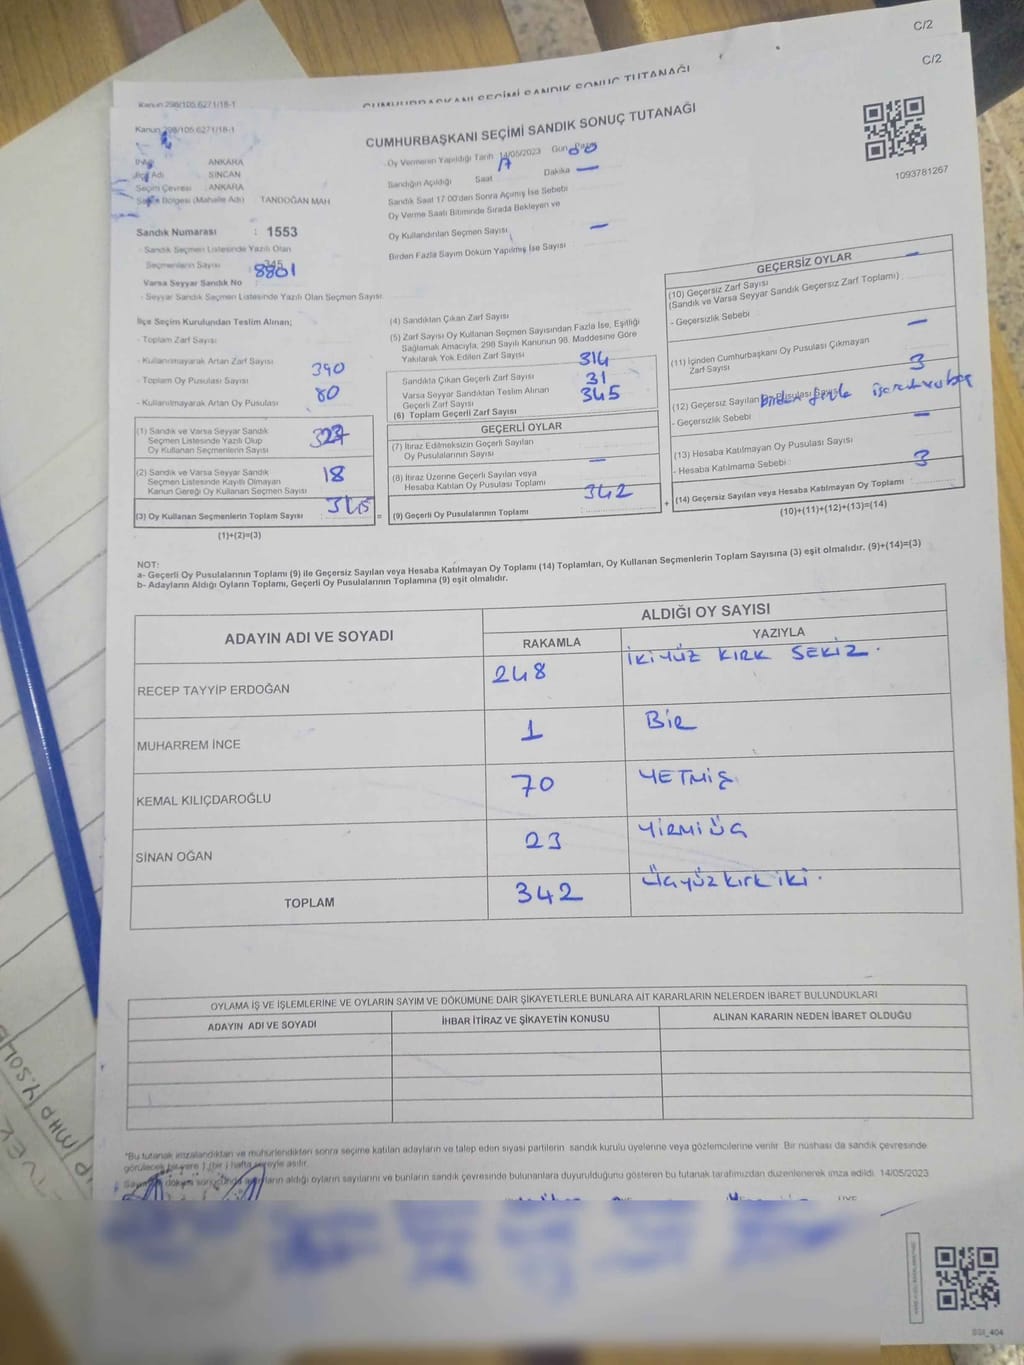 C/2
CUMHURBAŞKANI SEÇİMİ SANDIK SONUÇ TUTANAĞI
Kanun 298/105.6271/18-1
C/2
Kanun 298/105.6271/18-1
CUMHURBAŞKANI SEÇİMİ SANDIK SONUÇ TUTANAĞI
1093781267
ANKARA
Adı SİNCAN
Seçim Çevresi : ANKARA
Bölgesi (Mahalle Adı) TANDOĞAN MAH
Sandık Numarası : 1553
- Sandık Seçmen Listesinde Yazılı Olan
Seçmenlerin Sayısı 345
8801
Varsa Seyyar Sandık No
- Seyyar Sandık Seçmen Listesinde Yazılı Olan Seçmen Sayısı
Oy Vermenin Yapıldığı Tarih 14/05/2023 Gün Pazar
Sandığın Açıldığı Saat 17 Dakika 00
Sandık Saat 17:00'dan Sonra Açımış İse Sebebi
Oy Verme Saati Bitiminde Sırada Bekleyen ve
Oy Kullandırılan Seçmen Sayısı
Birden Fazla Sayım Döküm Yapılmış İse Sayısı
İlçe Seçim Kurulundan Teslim Alınan;
- Toplam Zarf Sayısı
- Kullanılmayarak Artan Zarf Sayısı
- Toplam Oy Pusulası Sayısı 390
- Kullanılmayarak Artan Oy Pusulası 80
(1) Sandık ve Varsa Seyyar Sandık
Seçmen Listesinde Yazılı Olup
Oy Kullanan Seçmenlerin Sayısı 327
(2) Sandık ve Varsa Seyyar Sandık
Seçmen Listesinde Kayıtlı Olmayan
Kanun Gereği Oy Kullanan Seçmen Sayısı 18
(3) Oy Kullanan Seçmenlerin Toplam Sayısı 345 =
(1)+(2)=(3)
(4) Sandıktan Çıkan Zarf Sayısı
(5) Zarf Sayısı Oy Kullanan Seçmen Sayısından Fazla İse, Eşitliği
Sağlamak Amacıyla, 298 Sayılı Kanunun 98. Maddesine Göre
Yakılarak Yok Edilen Zarf Sayısı
Sandıkta Çıkan Geçerli Zarf Sayısı 314
Varsa Seyyar Sandıktan Teslim Alınan
Geçerli Zarf Sayısı 31
(6) Toplam Geçerli Zarf Sayısı 345
GEÇERLİ OYLAR
(7) İtiraz Edilmeksizin Geçerli Sayılan
Oy Pusulalarının Sayısı
(8) İtiraz Üzerine Geçerli Sayılan veya
Hesaba Katılan Oy Pusulası Toplamı
(9) Geçerli Oy Pusulalarının Toplamı 342 +
GEÇERSİZ OYLAR
(10) Geçersiz Zarf Sayısı
(Sandık ve Varsa Seyyar Sandık Geçersiz Zarf Toplamı)
- Geçersizlik Sebebi
(11) İçinden Cumhurbaşkanı Oy Pusulası Çıkmayan
Zarf Sayısı
(12) Geçersiz Sayılan Oy Pusulası Sayısı 3
- Geçersizlik Sebebi : Birden fazla
(13) Hesaba Katılmayan Oy Pusulası Sayısı
- Hesaba Katılmama Sebebi :
(14) Geçersiz Sayılan veya Hesaba Katılmayan Oy Toplamı 3
(10)+(11)+(12)+(13)=(14)
NOT:
a- Geçerli Oy Pusulalarının Toplamı (9) ile Geçersiz Sayılan veya Hesaba Katılmayan Oy Toplamı (14) Toplamları, Oy Kullanan Seçmenlerin Toplam Sayısına (3) eşit olmalıdır. (9)+(14)=(3)
b- Adayların Aldığı Oyların Toplamı, Geçerli Oy Pusulalarının Toplamına (9) eşit olmalıdır.
ADAYIN ADI VE SOYADI ALDIĞI OY SAYISI
RAKAMLA YAZIYLA
RECEP TAYYİP ERDOĞAN 248 İKİYÜZ KIRK SEKİZ.
MUHARREM İNCE 1 BİR
KEMAL KILIÇDAROĞLU 70 YETMİŞ
SİNAN OĞAN 23 YİRMİÜÇ
TOPLAM 342 Üçyüzkırk iki.
OYLAMA İŞ VE İŞLEMLERİNE VE OYLARIN SAYIM VE DÖKÜMÜNE DAİR ŞİKAYETLERLE BUNLARA AİT KARARLARIN NELERDEN İBARET BULUNDUKLARI
ADAYIN ADI VE SOYADI İHBAR İTİRAZ VE ŞİKAYETİN KONUSU ALINAN KARARIN NEDEN İBARET OLDUĞU
*Bu tutanak imzalandıktan ve mühürlendikten sonra seçime katılan adayların ve talep eden siyasi partilerin sandık kurulu üyelerine veya gözlemcilerine verilir. Bir nüshası da sandık çevresinde
görülecek bir yere 1 (bir) hafta süreyle asılır.
Sayım döküm sonucunda adayların aldığı oyların sayılarını ve bunların sandık çevresinde bulunanlara duyurulduğunu gösteren bu tutanak tarafımızdan düzenlenerek imza edildi. 14/05/2023
SSI_404
MHP